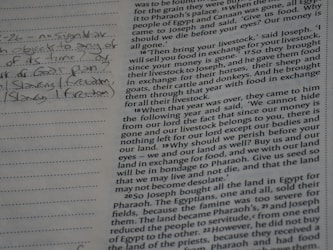 was to be found
for the grain they were buying
it to Pharaoh's palace. When
people of Egypt and Canaan was gone, all Egypt
came to Joseph and said, 'Give us food. Why
should we die before your eyes? Our money is
all gone.'
16 'Then bring your livestock,' said Joseph. 'I
will sell you food in exchange for your livestock,
since your money is gone.' 17 So they brought
their livestock to Joseph, and he gave them food
in exchange for their horses, their sheep and
goats, their cattle and donkeys. And he brought
them through that year with food in exchange
for all their livestock.
18 When that year was over, they came to him
the following year and said, 'We cannot hide
from our lord the fact that since our money is
gone and our livestock belongs to you, there is
nothing left for our lord except our bodies and
our land. 19 Why should we perish before your
eyes – we and our land as well? Buy us and our
land in exchange for food, and we with our land
will be in bondage to Pharaoh. Give us seed so
that we may live and not die, and that the land
may not become desolate.'
20 So Joseph bought all the land in Egypt for
Pharaoh. The Egyptians, one and all, sold their
fields, because the famine was too severe for
them. The land became Pharaoh's, 21 and Joseph
reduced the people to servitude, from one end
of Egypt to the other. 22 However, he did not buy
the land of the priests, because they received a
from Pharaoh and had food
of its time
God's plan
/ Slavery / freedom
/ Slavery / freedom